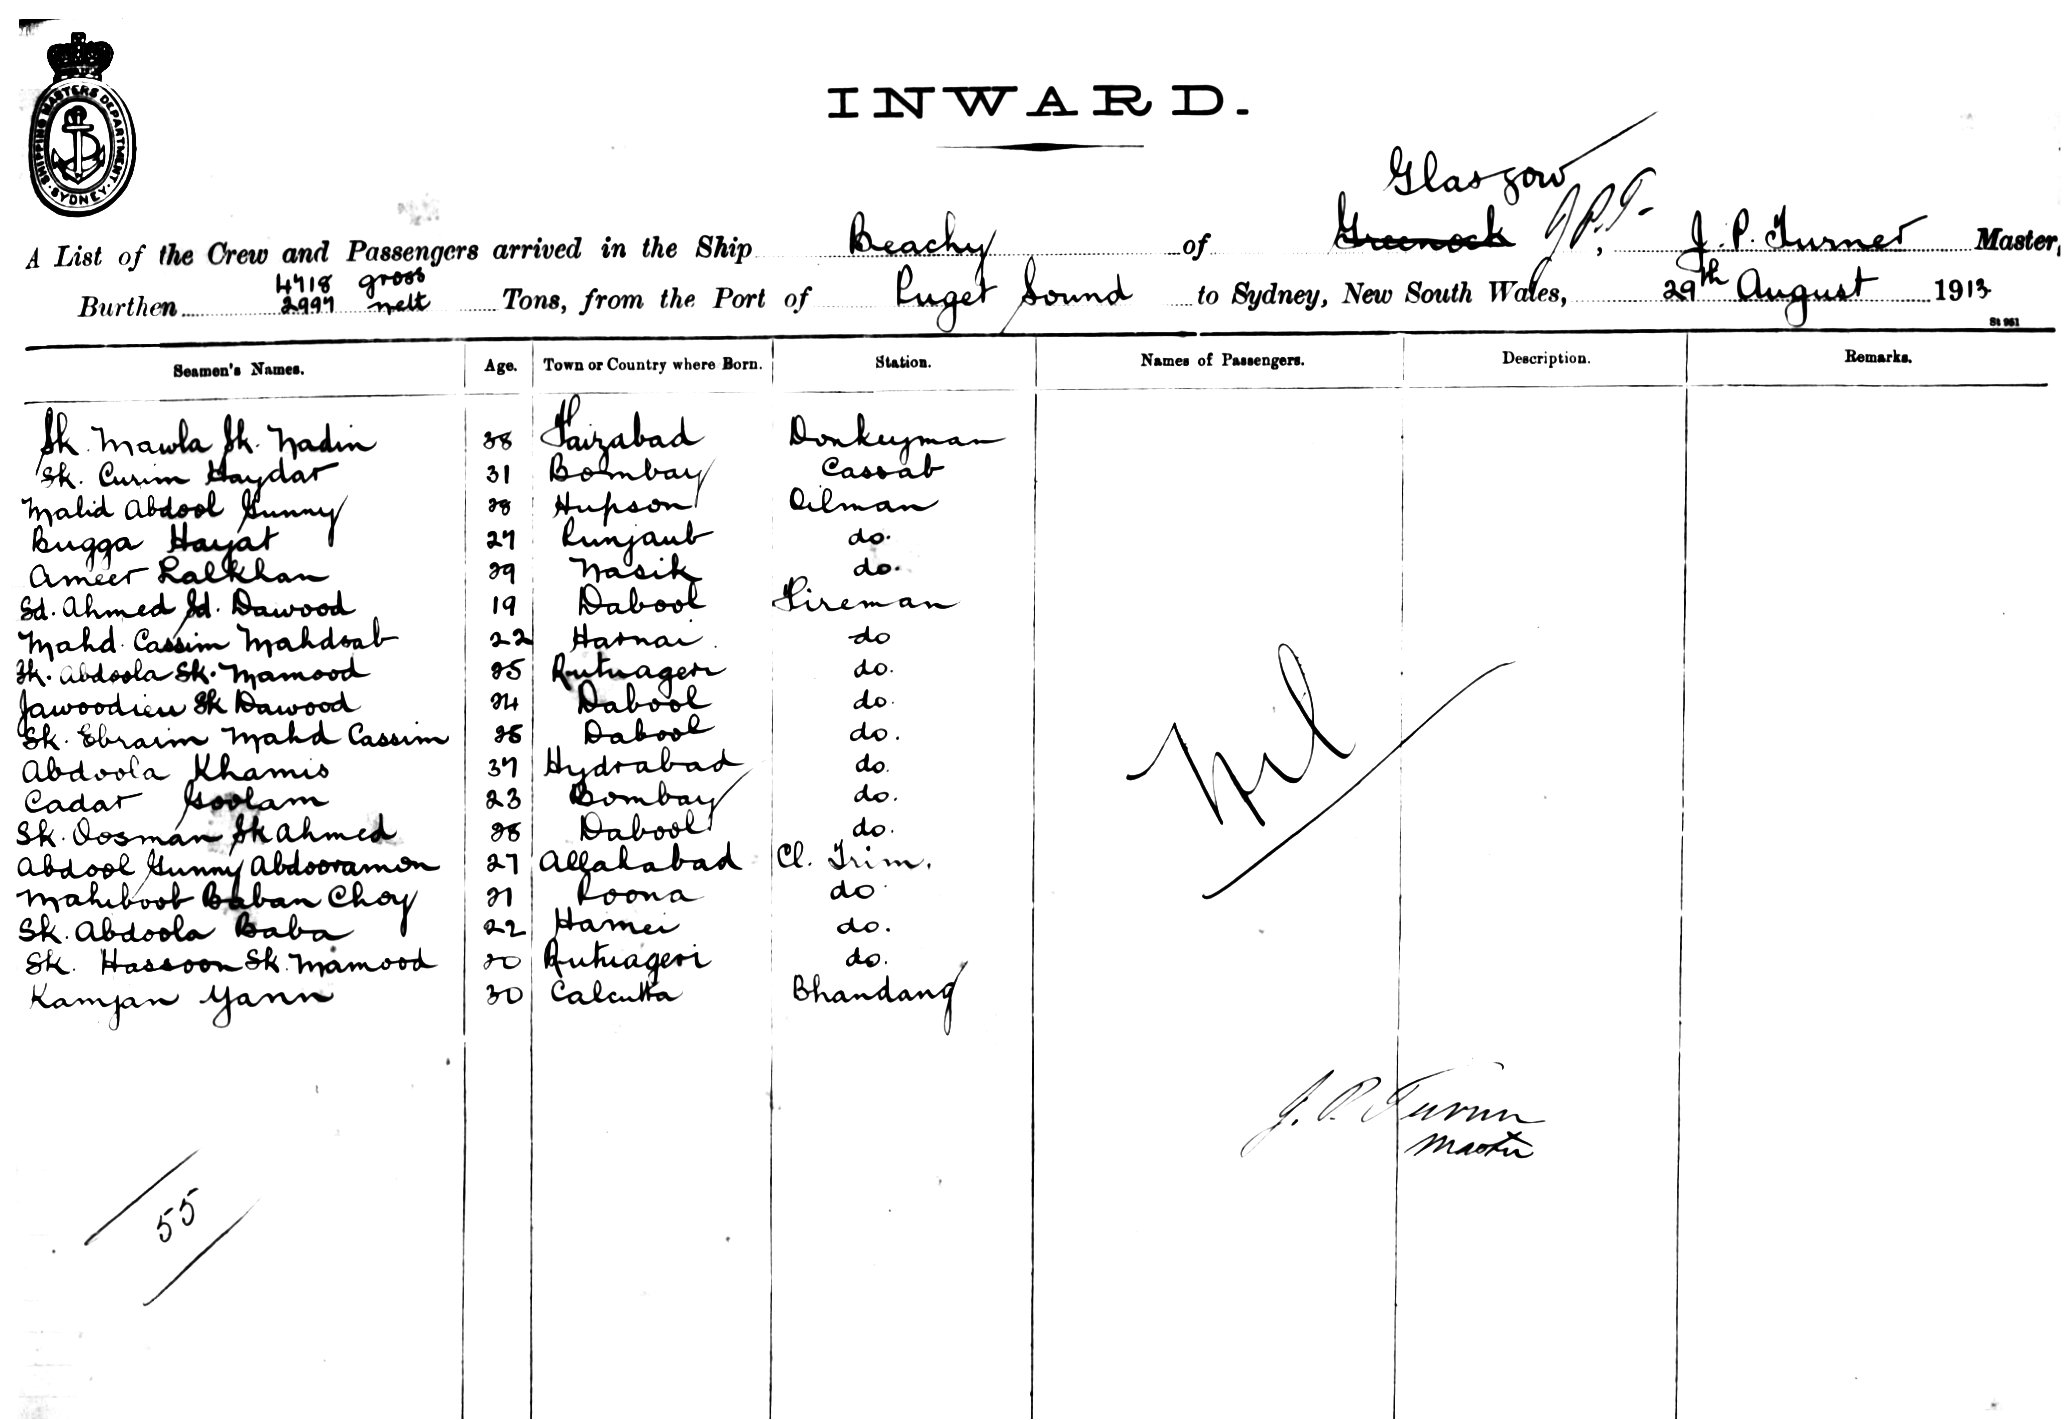 SHIPPING MASTERS DEPARTMENT · SYDNEY ·
INWARD.
Glasgow
A List of the Crew and Passengers arrived in the Ship Beachy of Greenock J.P.T. J. P. Turner Master,
4718 gross
Burthen 2997 nett Tons, from the Port of Puget Sound to Sydney, New South Wales, 29th August 1913
St 961
Seamen's Names. Age. Town or Country where Born. Station. Names of Passengers. Description. Remarks.
Sk. Mawla Sk. Nadin 38 Faizabad Donkeyman
Sk. Curim Haydar 31 Bombay Cassab
Malid Abdool Gunny 28 Hupson Oilman
Bugga Hayat 27 Punjaub do.
Ameer Lalkhan 29 Nasik do.
Sd. Ahmed Sd. Dawood 19 Dabool Fireman
Mahd. Cassim Mahdsab 22 Harnai do
Sk. Abdoola Sk. Mamood 25 Rutnageri do.
Jawoodieu Sk Dawood 24 Dabool do.
Sk. Ebraim Mahd Cassim 28 Dabool do.
Abdoola Khamis 37 Hydrabad do.
Cadar Goolam 23 Bombay do.
Sk. Oosman Sk Ahmed 28 Dabool do.
Abdool Gunny Abdooramon 27 Allahabad Cl. Trim.
Mahiboob Baban Choy 21 Poona do
Sk. Abdoola Baba 22 Hamei do.
Sk. Hassoon Sk. Mamood 20 Rutnageri do.
Kamjan Yann 30 Calcutta Bhandang
Nil
J. P. Turner
Master
55